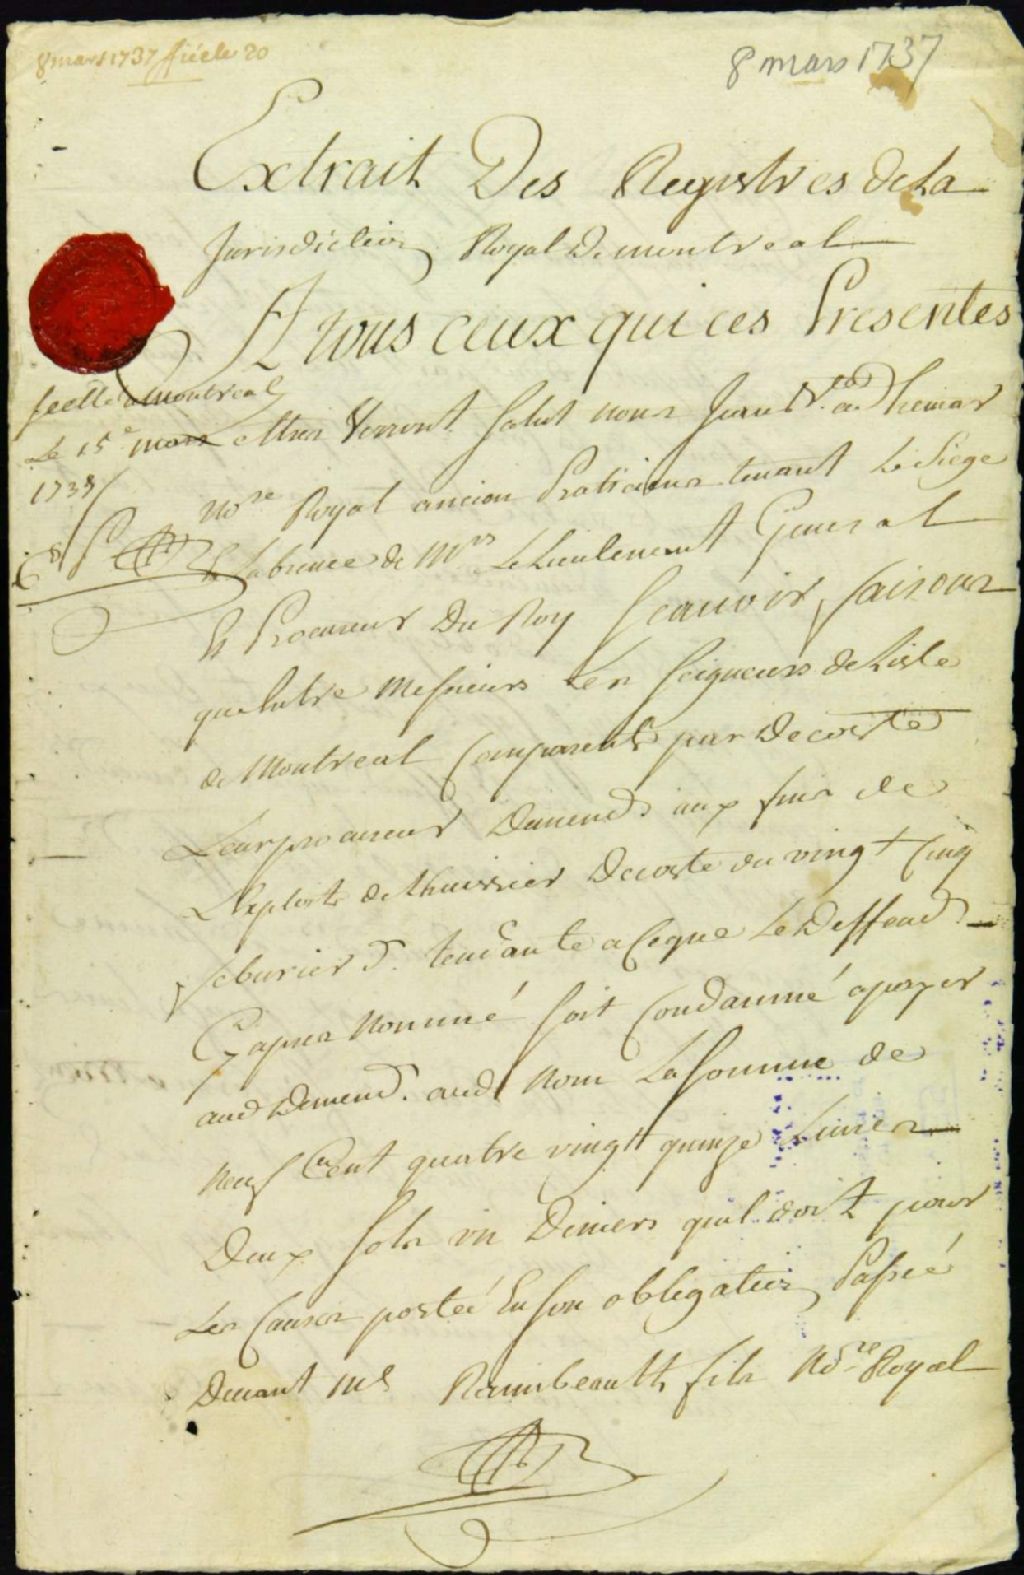 8 mars 1737 ficele 20
8 mars 1737
Extrait Des Registres de La
Jurisdiction Royal De montreal
A tous ceux qui ces Presentes
scellé a Montreal
Le 15e mars
1737
Lettres Verront Salut nous Jean Bte ad hemar
Nore Royal ancien Praticien tenant Le Siege
Labsence de Mrs Le Lieutenant General
& Procureur Du Roy Scauoir faisons
que Entre Messieurs Les Seigneurs de Lisle
de Montreal Comparents par Decoste
Leur procureur Demends aux fins de
Lexploit de Lhuissier Decoste du vingt Cinq
feburier Dr tendante a Ceque Le Deffend
Cy apres Nommé soit Condamné a payer
aud Demend. aud Nom La somme de
Neuf Cent quatre vingt quinze Liures
Deux sols un Deniers quil doit pour
Les Causes portée En son obligation Passée
Deuant Me Raimbeault fils Nore Royal